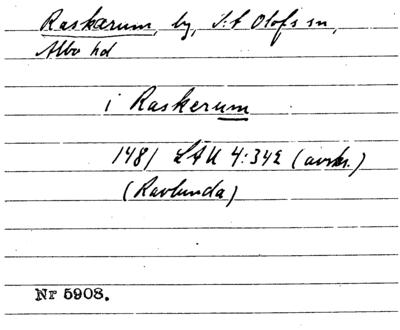 Raskarum, by, S:t Olofs sn,
Albo hd
i Raskerum
1481 LAU 4:342 (avskr.)
(Ravlunda)
Nr 5908.